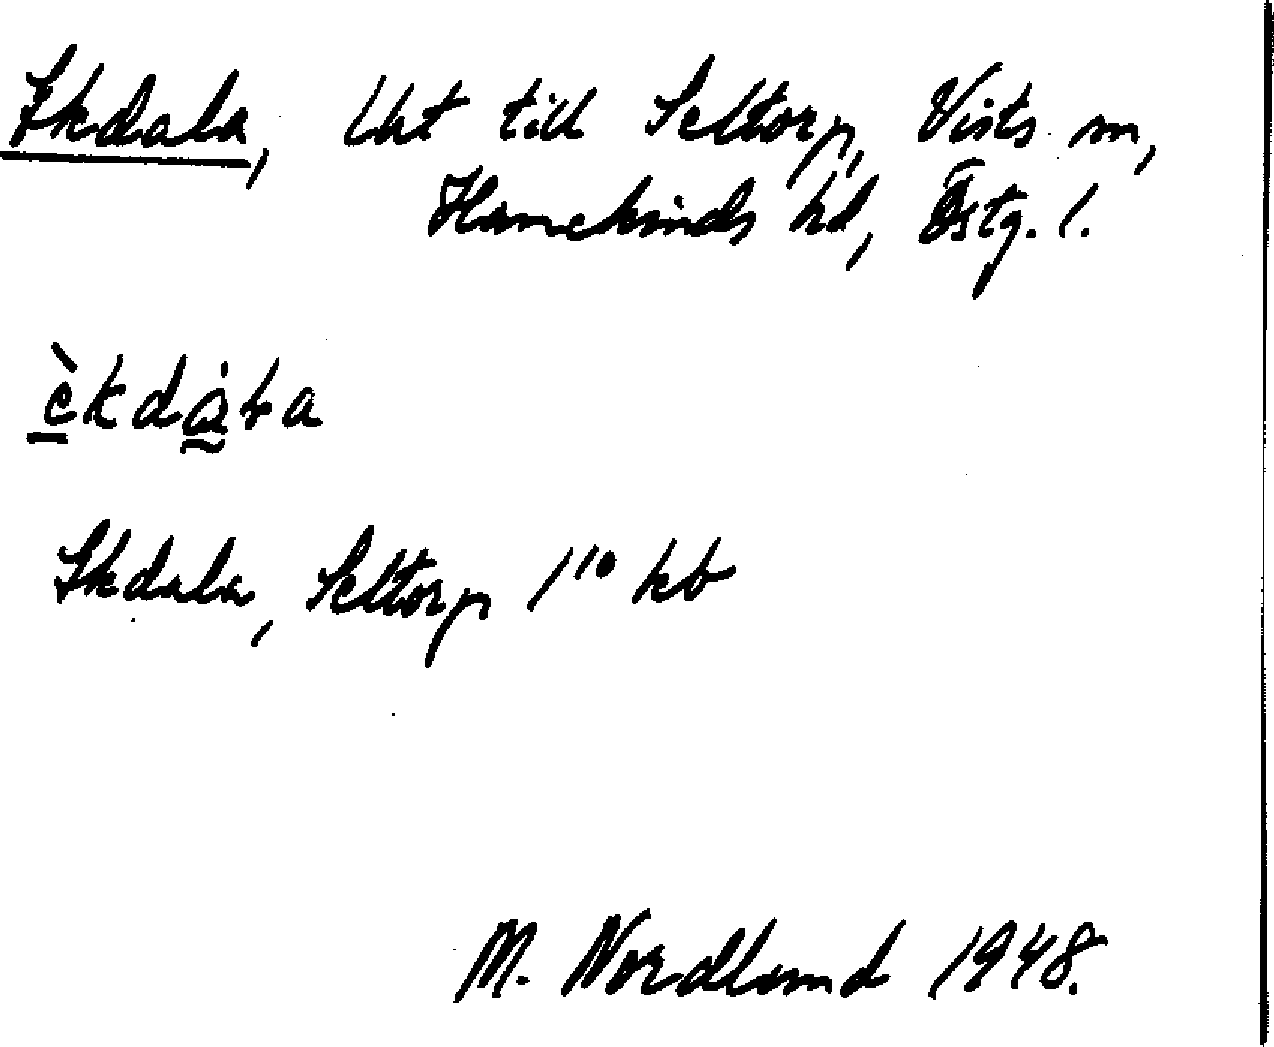 Ekdala, lht till Seltorp, Vists sn,
Hanekinds hd, Östg. l.
èkdàla
Ekdala, Seltorp 1 10 kb
M. Nordlund 1948.